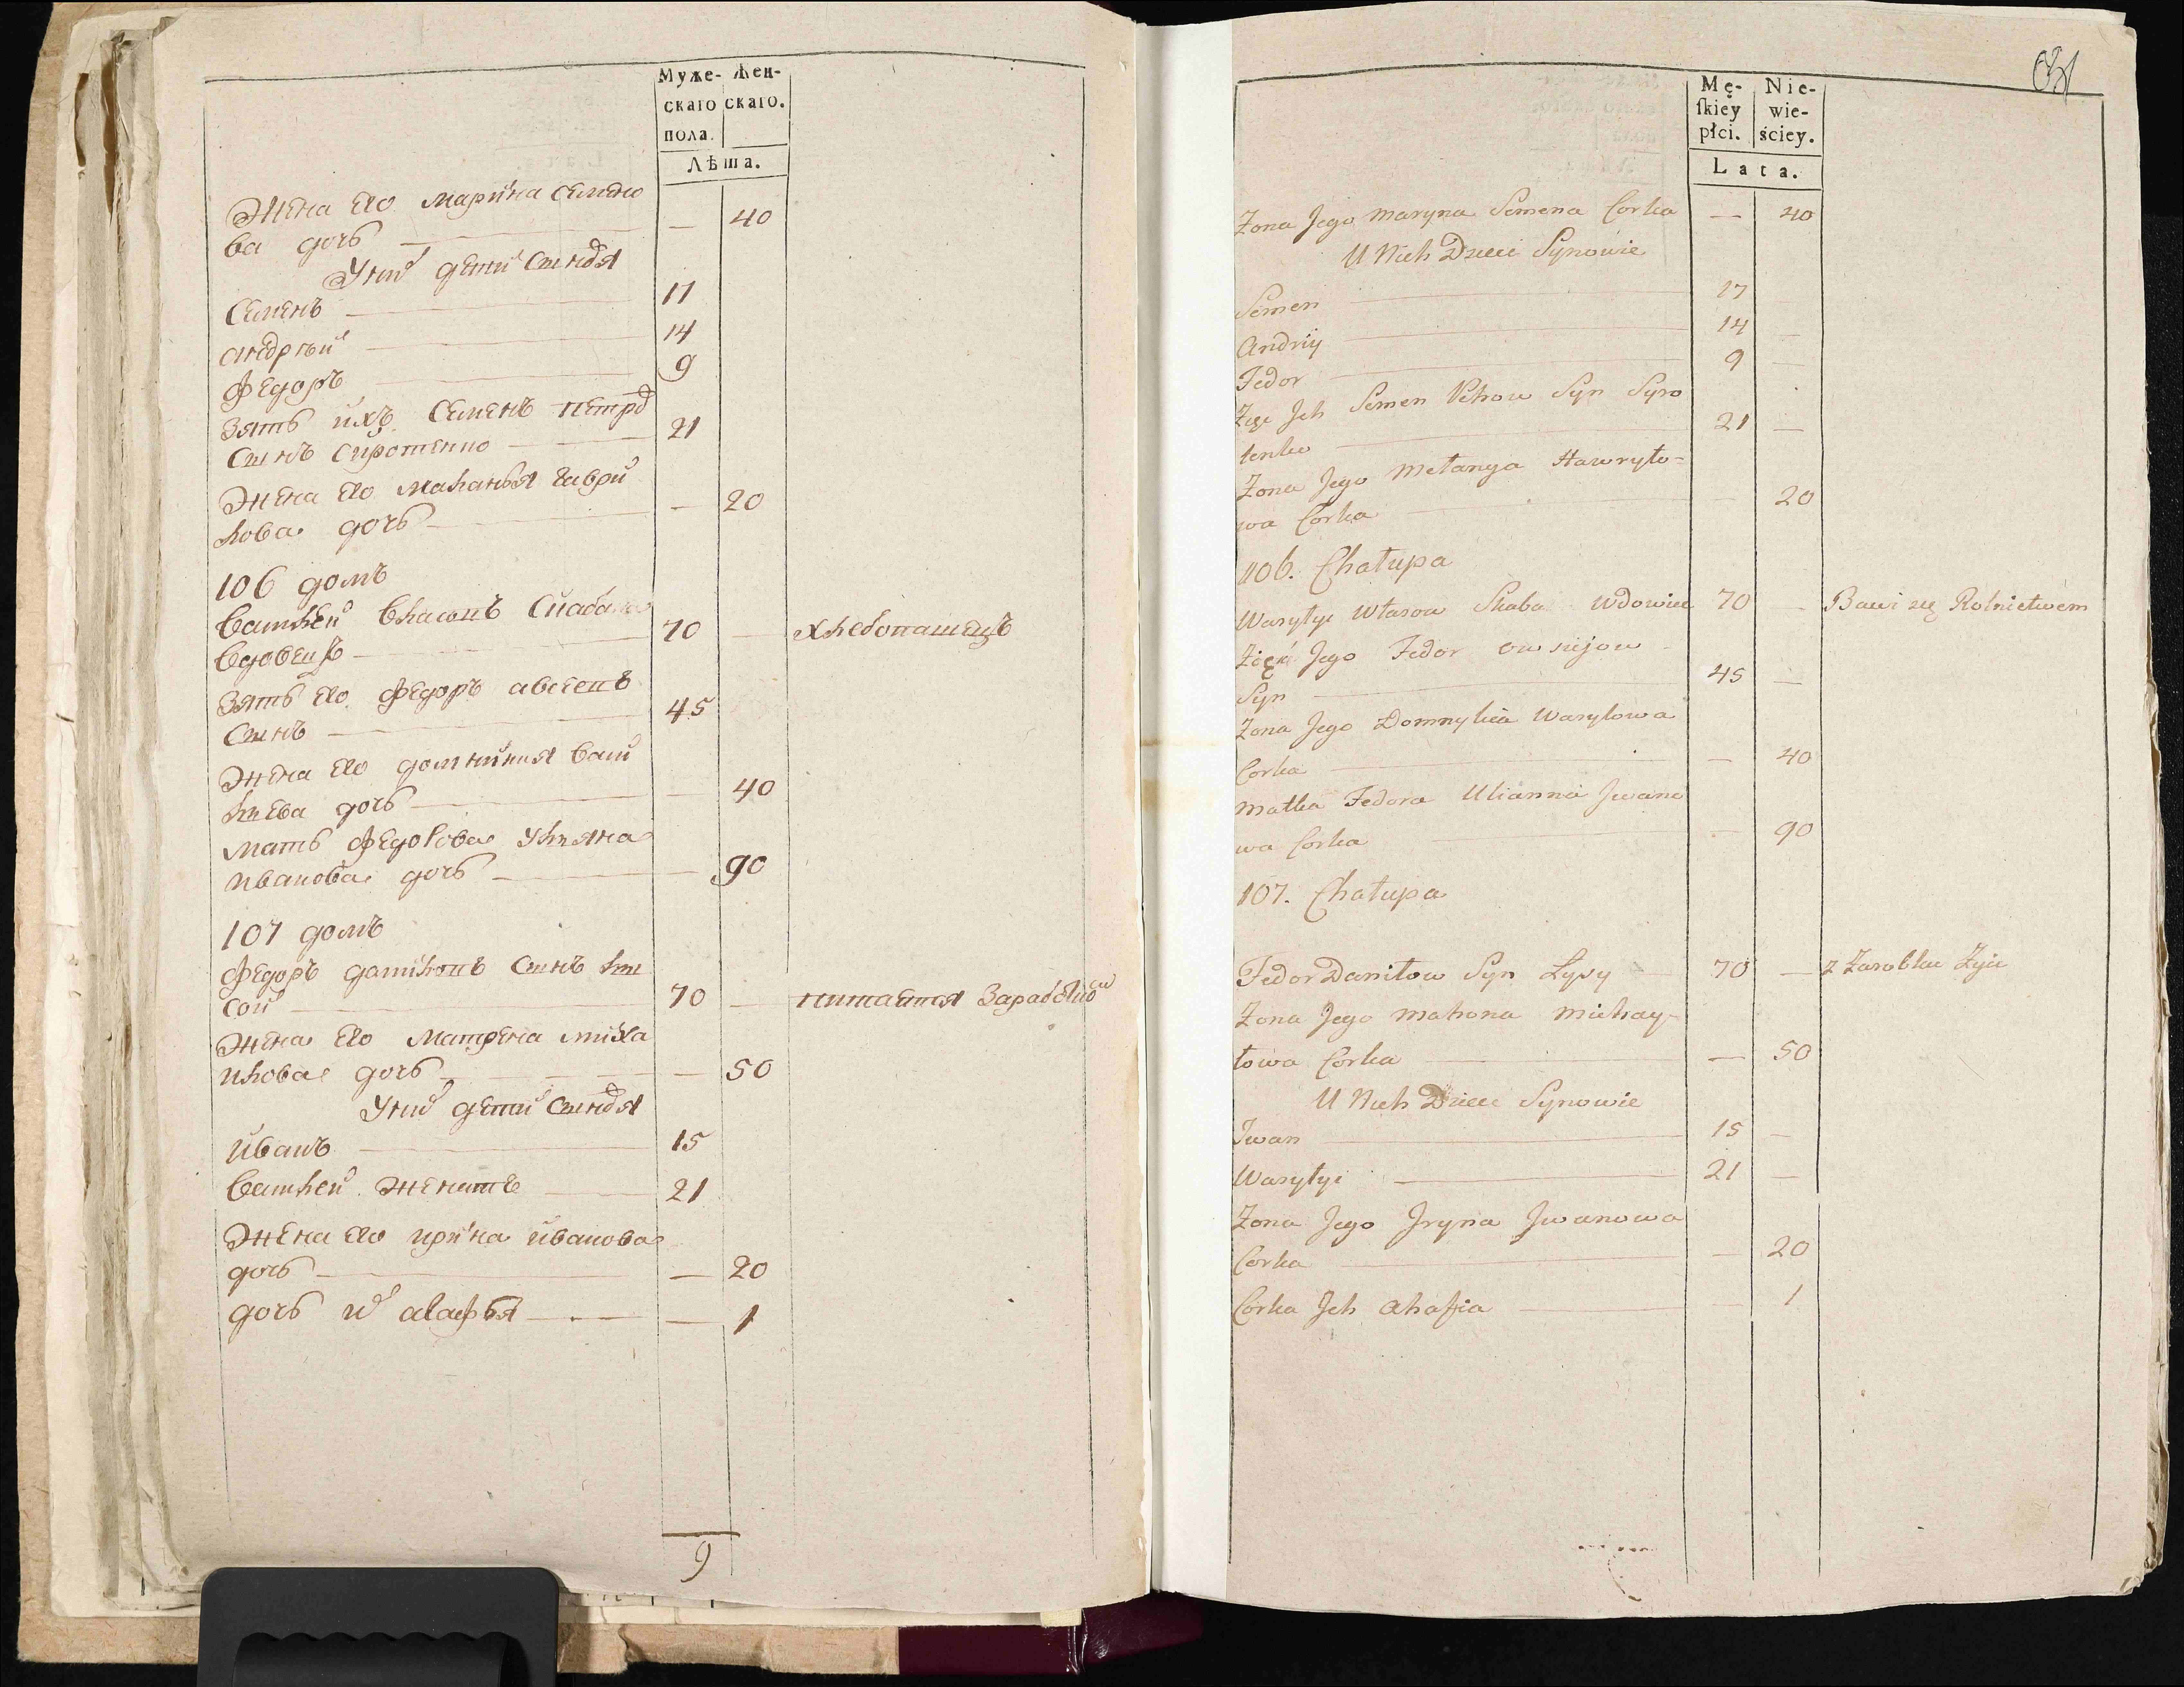 Муже- Жен-
скаго скаго.
пола.
Лѣта.
Жена его марина семено 40
ва дочь
У них дети синовя
Семенъ 17
андрѣй 14
Федоръ 9
Зять ихъ Семенъ петров
синъ сиротенко 21
Жена его маланья гаври
лова дочь 20
106 домъ
василей власовъ скаба
вдовецъ 70 хлебопашецъ
Зять его федоръ авсеевъ
синъ 45
Жена его домникия васи
лиева дочь 40
мать федорова улияна
иванова дочь 90
107 домъ
федоръ даниловъ синъ ли
сой 70 питается заработком
Жена его матрена миха
илова дочь 50
У них дети синовя
иванъ 15
василей женатъ 21
Жена его ирина иванова
дочь 20
дочь их агафья 1
9
Mę- Nie-
skiey wie-
płci. ściey.
Lata.
Zona Jego Maryna Semena Corka 40
U Nich Dzieci Synowie
Semen 17
Andriy 14
Fedor 9
Zięc Jch Semen Petrow Syn Syro
tenko 21
Zona Jego Metanya Hawryło=
wa Corka 20
106. Chałupa
Wasyłyi Własow Skaba Wdowiec 70 Bawi się Rolnictwem
Zięć Jego Fedor owsiejow
Syn 45
Zona Jego Domnykia Wasylowa
Corka 40
Matka Fedora Ulianna Jwano
wa Corka 90
107. Chałupa
Fedor Daniłow Syn Łysy 70 z Zarobku Żyie
Zona Jego Matrona Michay-
łowa Corka 50
U Nich Dzieci Synowie
Jwan 15
Wasyłyi 21
Zona Jego Jryna Jwanowa
Corka 20
Corka Jch Ahafia 1